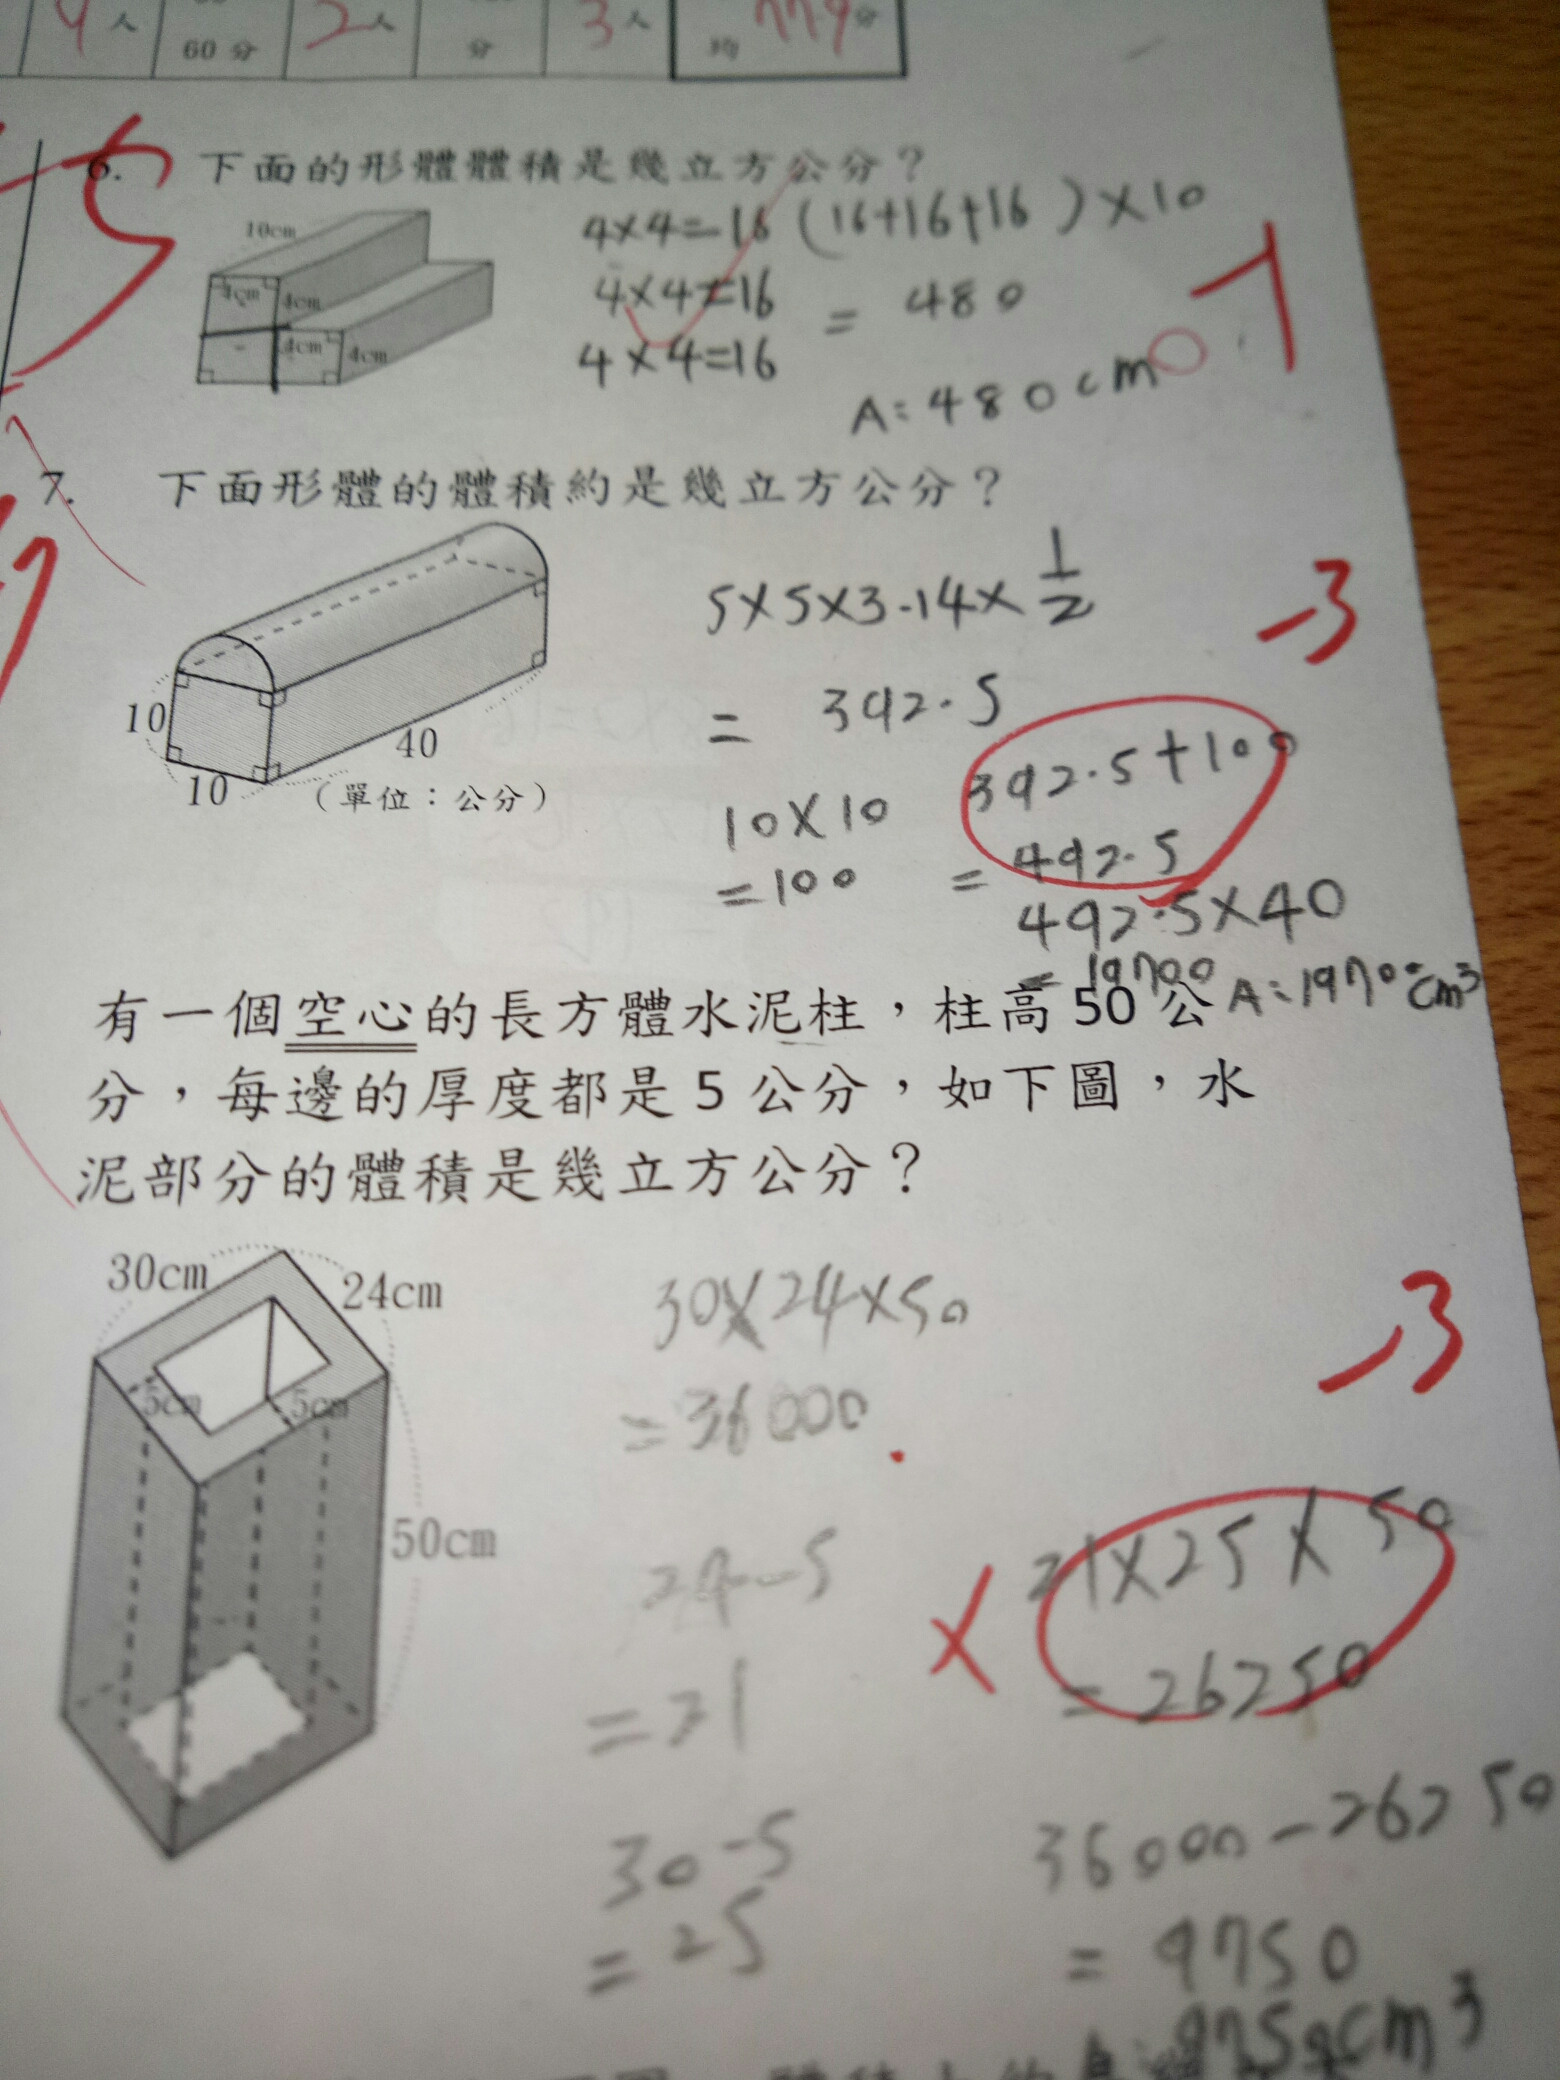 9人
60分
2人
分
3人
均 77.9分
6. 下面的形體體積是幾立方公分？
10cm
4cm
4cm
4cm
4cm
4×4=16 (16+16+16)×10
4×4=16
= 480
4×4=16
A:480cm
-1
7. 下面形體的體積約是幾立方公分？
10
10
40
(單位：公分)
5×5×3.14×1/2
-3
= 392.5
392.5+100
10×10
=100
= 492.5
492.5×40
= 19700 A:19700cm³
有一個空心的長方體水泥柱，柱高 50 公
分，每邊的厚度都是 5 公分，如下圖，水
泥部分的體積是幾立方公分？
30cm
24cm
5cm
5cm
50cm
30×24×50
-3
=36000
24-5
=21
21×25×50
= 26250
30-5
=25
36000-26250
= 9750
9750cm³